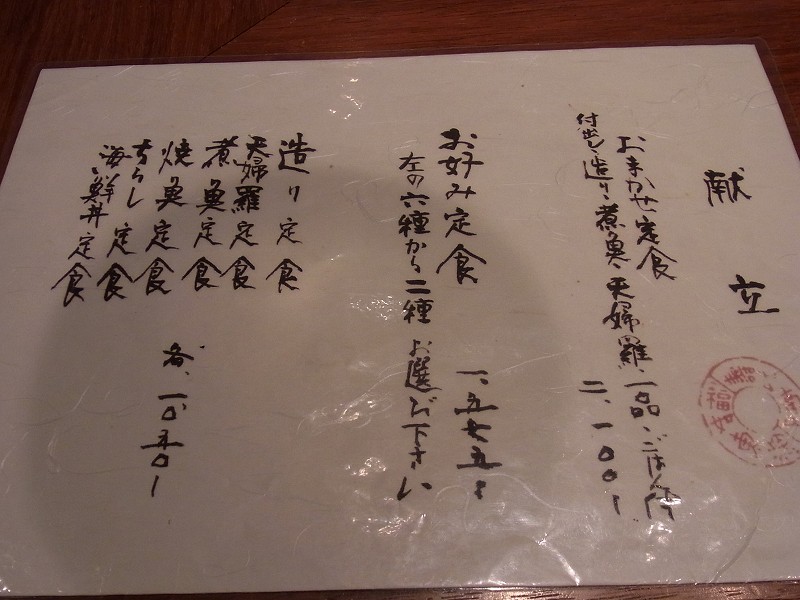 献立
おまかせ定食
付出し、造り、煮魚、天婦羅、一品、ごはん付
二、一〇〇ー
お好み定食
一、五七五ー
左の六種から二種 お選び下さい
造り定食
天婦羅定食
煮魚定食
焼魚定食
ちらし定食
海鮮丼定食
各、一、〇五〇ー